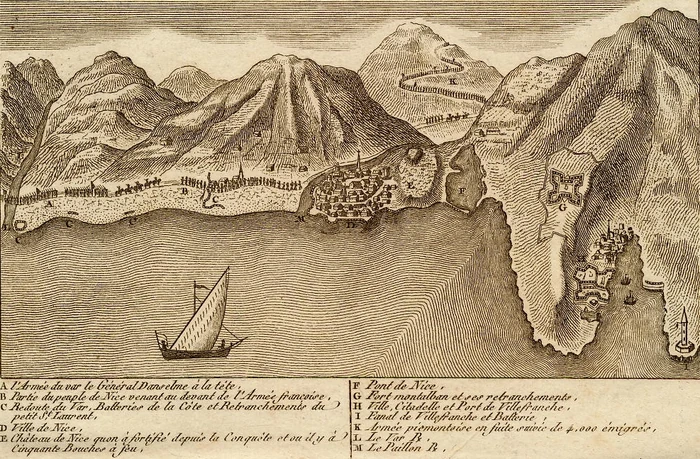 A
B
C
K
E
F
G
H
L
C
C
C
M
D
I
A l'Armée du var le Général Danselme à la tête,
B Partie du peuple de Nice venant au devant de l'Armée françoise,
C Redoute du Var, Batteries de la Côte et Retranchements du
petit St Laurent,
D Ville de Nice,
E Château de Nice quon à fortifié depuis la Conquête et ou il y à
Cinquante Bouches à feu,
F Pont de Nice,
G Fort montalban et ses retranchements,
H Ville, Citadelle et Port de Villefranche,
I Fanal de Villefranche et Batterie,
K Armée piemontoise en fuite suivie de 4,000 émigrés,
L Le Var R,
M Le Paillon R,